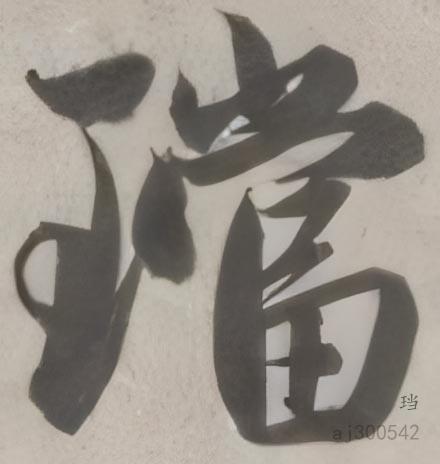 璫
珰
aj300542